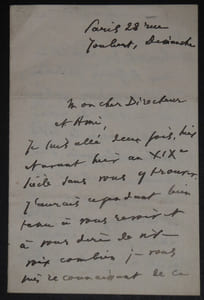 Paris 28 rue
Joubert, Dimanche
Mon cher Directeur
et Ami,
Je suis allé deux fois, hier
et avant hier au XIXe
Siècle sans vous y trouver.
J'aurais cependant bien
tenu à vous revoir et
à vous dire de vive
voix combien je vous
suis reconnaissant de ce